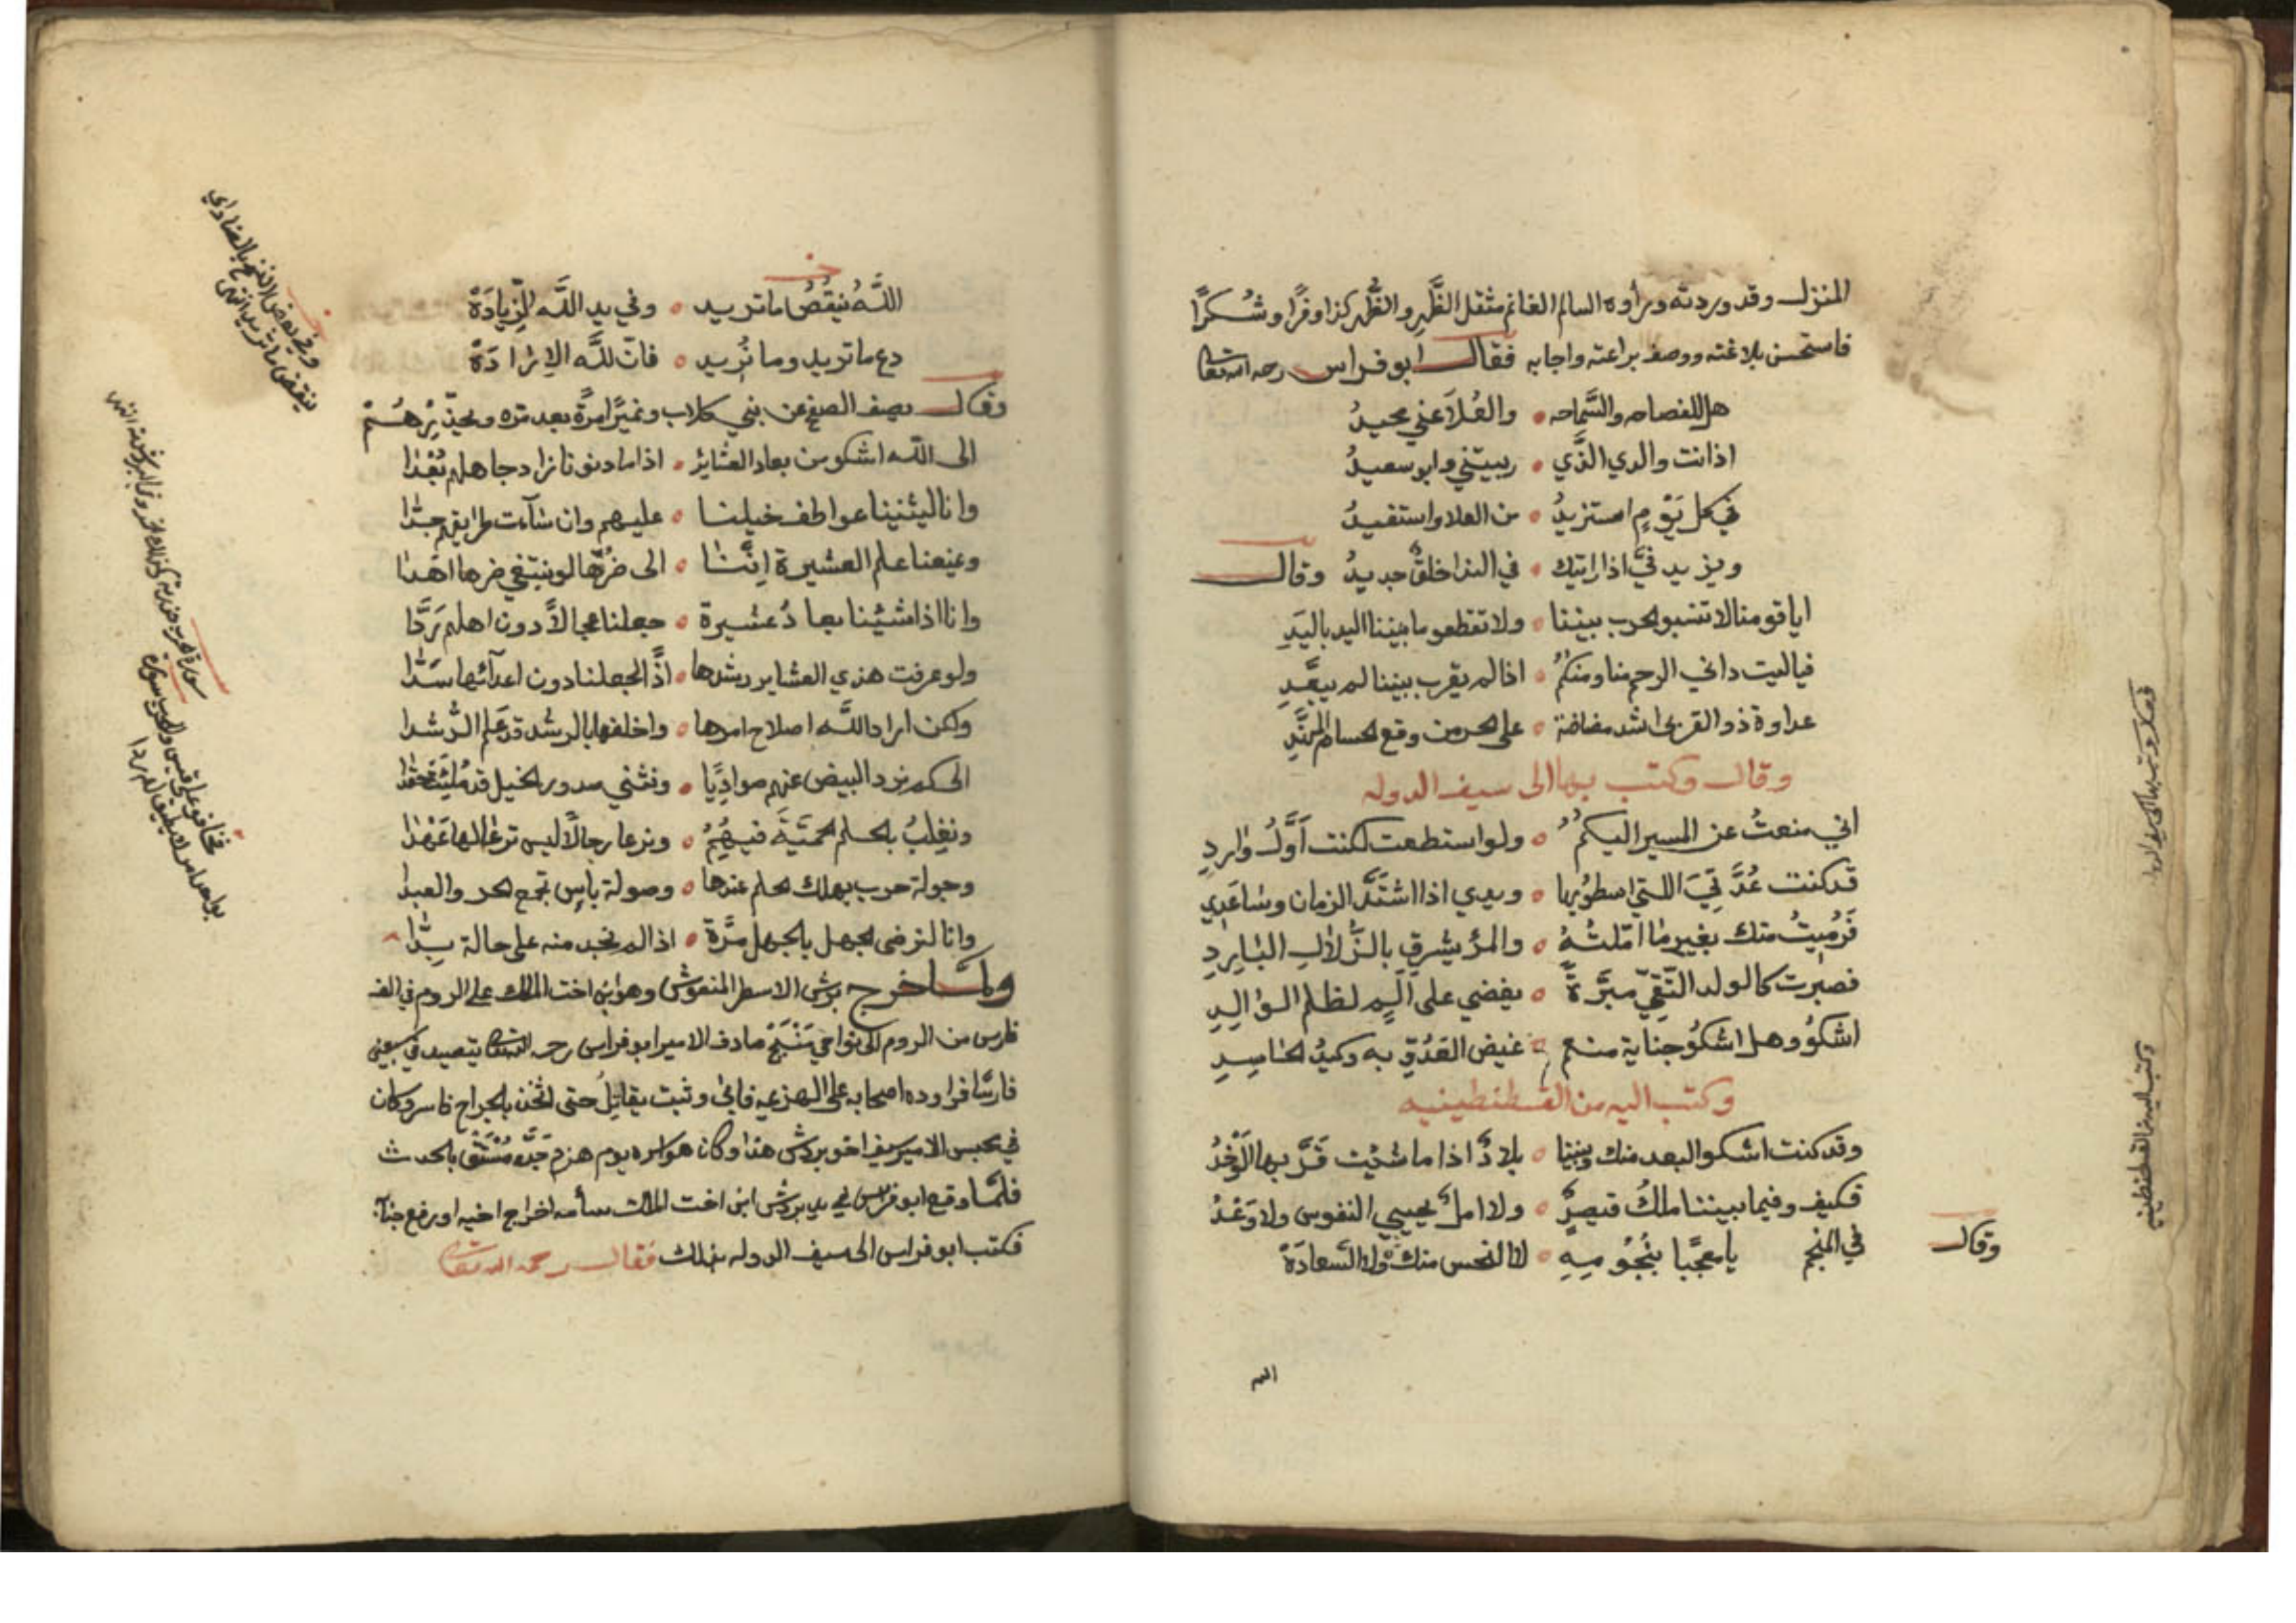 المنزل وقد وردته وراوه السالم الغانم مثقل الظَّهر والظُّهر كذا وفرًا وشُكرًا
فاستحسن بلاغته ووصف براعته واجابه فقال ابو فراس رحمه الله تعا
هل للفصاحه والسَّماحه • والعُلاَ عني محيدُ
اذ انت والدي الذَّي • ربيتني وابو سعيدُ
في كل يَوْمٍ استزيدُ • من العلا واستفيدُ
ويزيد فيَّ اذا رايتك • في الندا خلقٌ جديدُ وقال
ايا قومنا لا تنشبو الحرب بيننا • ولا تقطعو ما بيننا اليد باليَدِ
فياليت داني الرحم منا ومنكمُ • اذا لم يقرب بيننا لم يبعَّدِ
عداوة ذو القربى اشد مضاضة • على الحر من وقع الحسام المهنَّدِ
وقال وكتب بها الى سيف الدوله
اني منعتُ عن المسير اليكمُ • ولو استطعت لكنت اَوَّلُ واردِ
قد كنت عُدَّتِيَ اللتي اسطو بها • ويدي اذا اشتَدَّ الزمان وساعَدِي
فَرُمِيتُ منك بغير ما امّلتُهُ • والمرؤ يشرق بالزُّلالِ البَارِدِ
فصبرت كالولد التَّقيّ مبَّرةً • يغضي على اَلَمٍ لظلم الوَالِدِ
اشكُو وهل اشكُو جناية منعم • غيض العَدُوِّ به وكيدُ الحَاسِدِ
وكتب اليه من القسطنطينيه
وقد كنت اشكو البعد منك وبيننا • بلادٌ اذا ما شئت قَرَّبها الوَخْدُ
فكيف وفيما بيننا ملكُ قيصرٍ • ولا امل يحيي النفوس ولا وَعْدُ
وقال في المنجم يا معجبًا بنُجُومِهِ • لا النحس منك ولا السَّعادَهْ
الله
اللَّهُ يُنقِصُ ما تريد • وفي يد اللَّه الزِّيادَهْ
دع ما تريد وما نُريد • فانّ للَّه الارادَهْ
وقال يصف الصفح عن بني كلاب ونميرًا مرةً بعد مره ويحذّرهُمْ
الى اللَّه اشكو من بعاد العشاير • اذا ما دنونا زاد جاهلهم بُعْدَا
وانا ليثنينا عواطف خيلنا • عليهم وان سآءت طرايقهم جدَّا
ويمنعنا علم العشيرة اِنَّنَا • الى ضُرِّها لو نبتغي ضرها اهْدَا
وانا اذا شئنا بعادُ عشيرة • جعلنا عجالاً دون اهلهم نَردَّا
ولو عرفت هذي العشاير رشدها • اذًا لجعلنا دون اعدآئها سَدَّا
ولكن اراد اللَّه اصلاح امرها • واخلفها بالرشد قد عَلم الرُّشدا
الى كم نرد البيض عنهم صوادِيًا • ونثني صدور الخيل قد مُلِئَت حقدا
ونغلبُ بالحلم الحميَّة فيهُمُ • ونرعا رجالاً ليس ترعا لها عَهْدَا
وجولة حرب يهلك الحلم عندها • وصولة باسٍ تجمع الحر والعبدا
وانا لنرضى الجهل بالجهل مرَّةً • اذا لم نجد منه على حالة بُدَّا
ولما خرج بردس الاسطر المنفوش وهو ابن اخت الملك على الروم في الف
فارس من الروم الى نواحي مَنْبِجْ صادف الامير ابو فراس رحمه الله تعا يتصيد في سبعين
فارسًا فراوده اصحابه على الهزيمه فابى وثبت يقاتلُ حتى اثخن بالجراح فاسر وكان
في حبس الامير سيف اخو بردس هذا وكان هو اسره يوم هزم جدّه دمُسْتُق بالحدث
فلمَّا وقع ابو فراس في يد بردس ابن اخت الملك سأمه اخراج اخيه
فكتب ابو فراس الى سيف الدوله بذلك فقال رحمه الله تعا
وفي بعض النسخ
ينقض ما تريد
وكتب اليه من القسطنطينيه